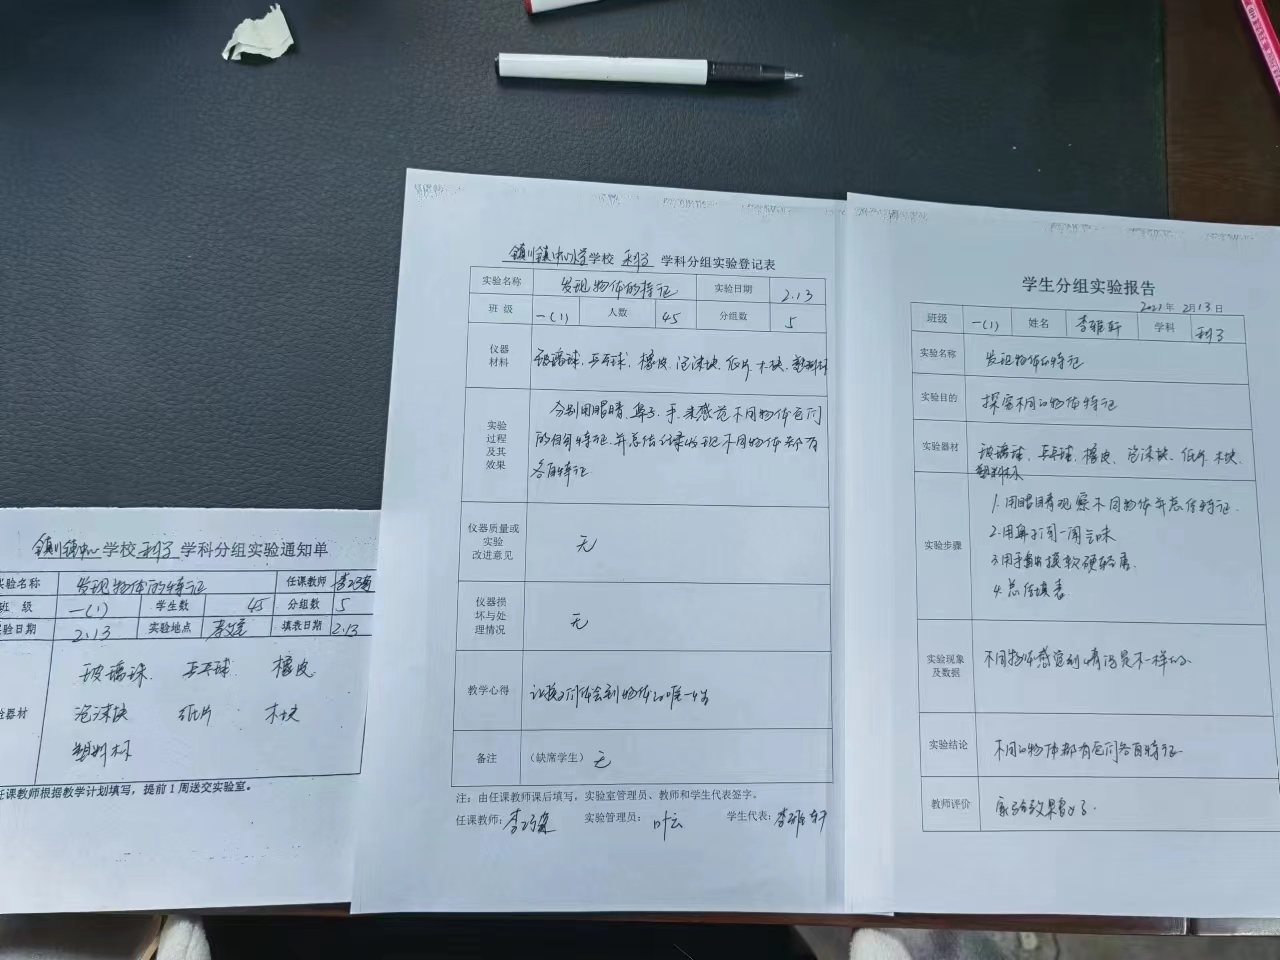 镇川镇中心 学校 科学 学科分组实验通知单
实验名称 发现物体的特征 任课教师
班 级 一(1) 学生数 45 分组数 5
实验日期 2.13 实验地点 教室 填表日期 2.13
玻璃珠 乒乓球 橡皮
验器材 泡沫块 纸片 木块
塑料杯
任课教师根据教学计划填写，提前1周送交实验室。
镇川镇中心小学 学校 科学 学科分组实验登记表
实验名称 发现物体的特征 实验日期 2.13
班 级 一(1) 人数 45 分组数 5
仪器
材料
玻璃球、乒乓球、橡皮、泡沫块、纸片、木块、塑料杯
实验
过程
及其
效果
分别用眼睛、鼻子、手、来感觉不同物体它们
的自身特征、并总结记录发现不同物体都有
各自特征
仪器质量或
实验
改进意见
无
仪器损
坏与处
理情况
无
教学心得 让孩子们体会到物体的唯一性
备注 （缺席学生） 无
注：由任课教师课后填写，实验室管理员、教师和学生代表签字。
任课教师： 实验管理员：叶云 学生代表：李雅轩
学生分组实验报告
2021年 2月13日
班级 一(1) 姓名 李雅轩 学科 科学
实验名称 发现物体的特征
实验目的 探究不同的物体特征
实验器材 玻璃球、乒乓球、橡皮、泡沫块、纸片、木块、
塑料杯
实验步骤
1.用眼睛观察不同物体并总结特征.
2.用鼻子闻一闻气味
3.用手摸一摸软硬轻重.
4.总结填表
实验现象
及数据
不同物体感觉到情况是不一样的
实验结论 不同的物体都有它们各自特征
教师评价 实验效果良好.